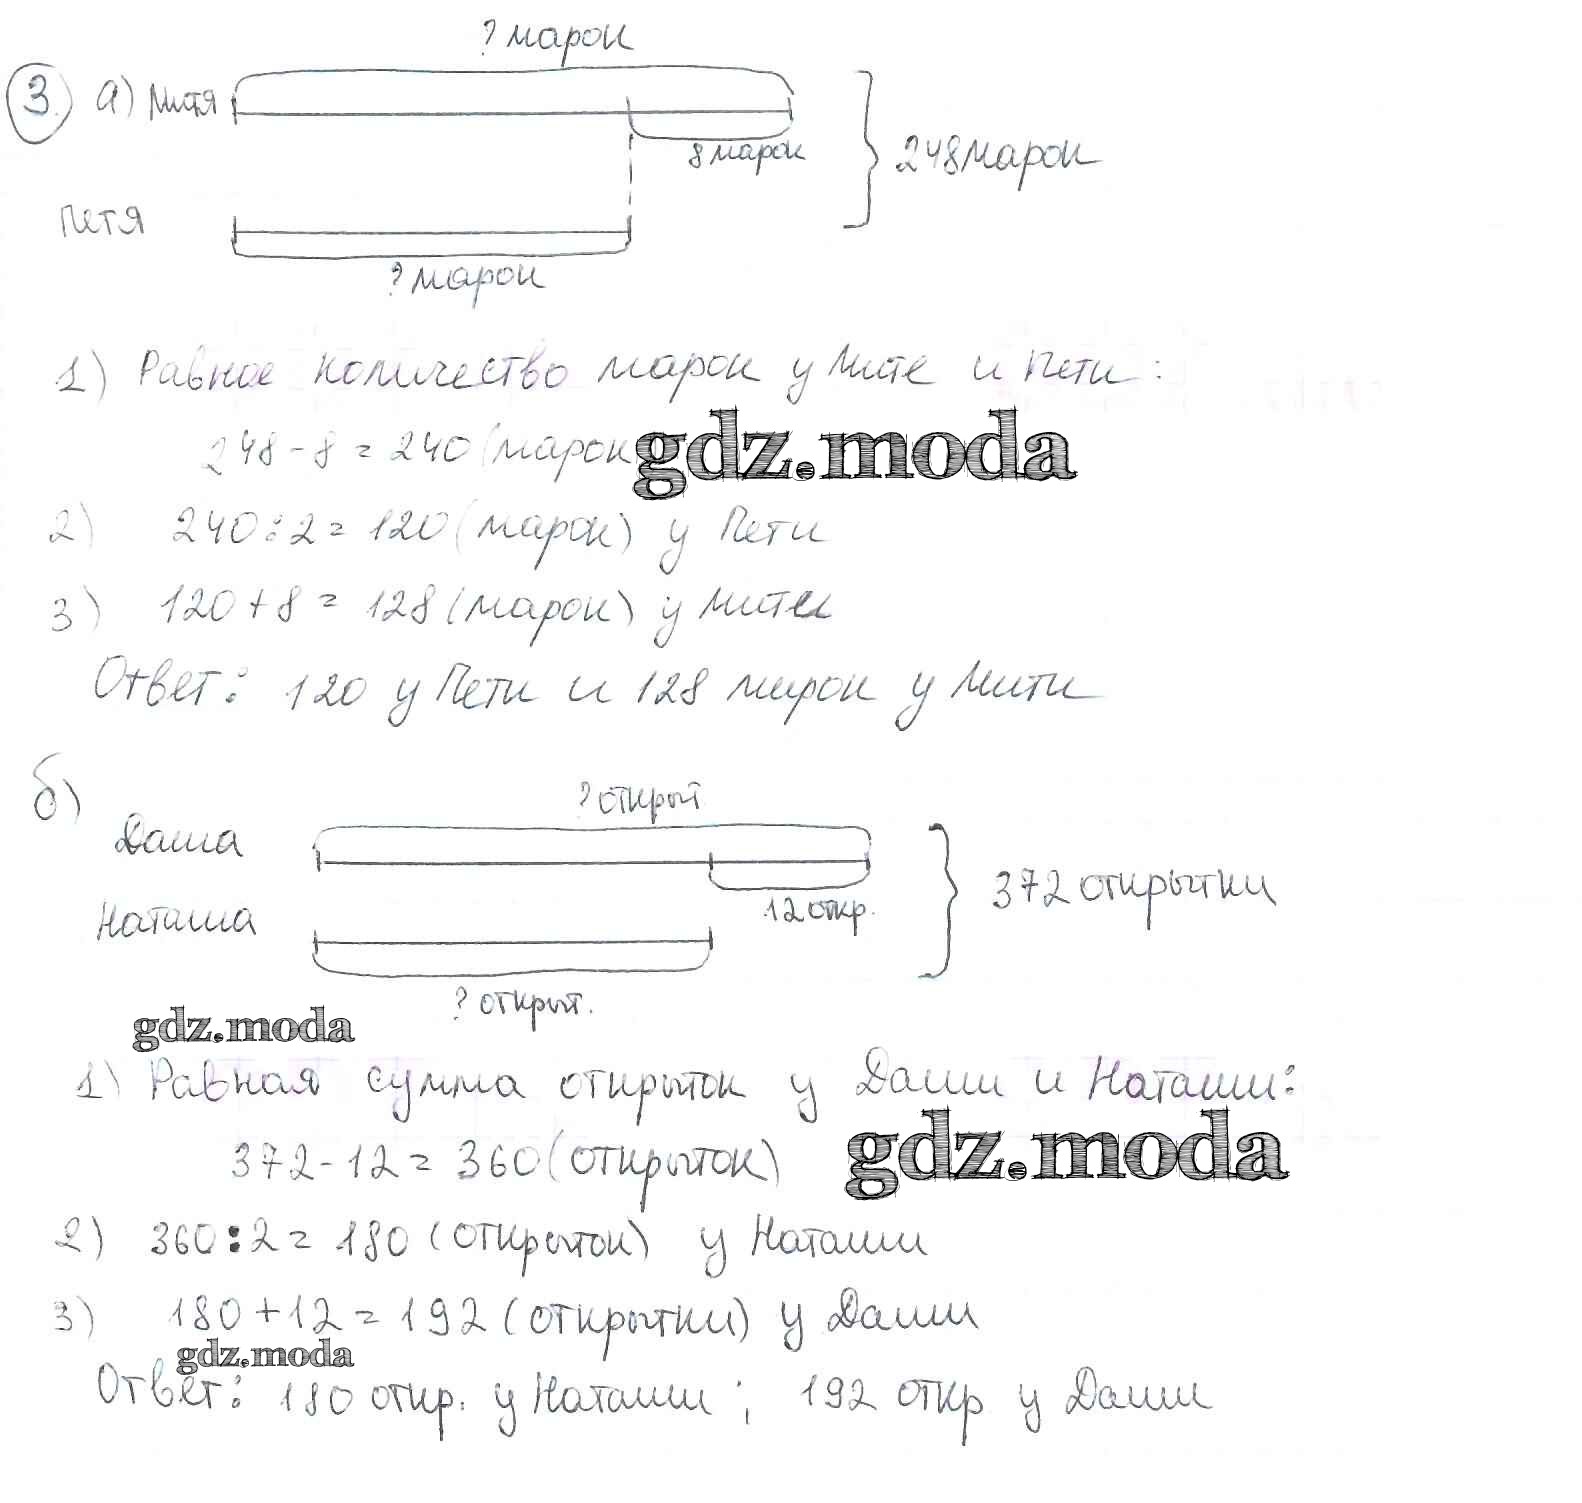 ? марок
3. а) Митя
8 марок
248 марок
Петя
? марок
1) Равное количество марок у Мите и Пети:
248 - 8 = 240 (марок
gdz.moda
2) 240 : 2 = 120 (марок) у Пети
3) 120 + 8 = 128 (марок) у Мити
Ответ: 120 у Пети и 128 мирок у Мити
б)
? открыт
Даша
12 откр.
372 открытки
Наташа
? открыт.
gdz.moda
1) Равная сумма открыток у Даши и Наташи:
372 - 12 = 360 (открыток)
gdz.moda
2) 360 : 2 = 180 (открыток) у Наташи
3) 180 + 12 = 192 (открытки) у Даши
gdz.moda
Ответ: 180 откр. у Наташи ; 192 откр у Даши